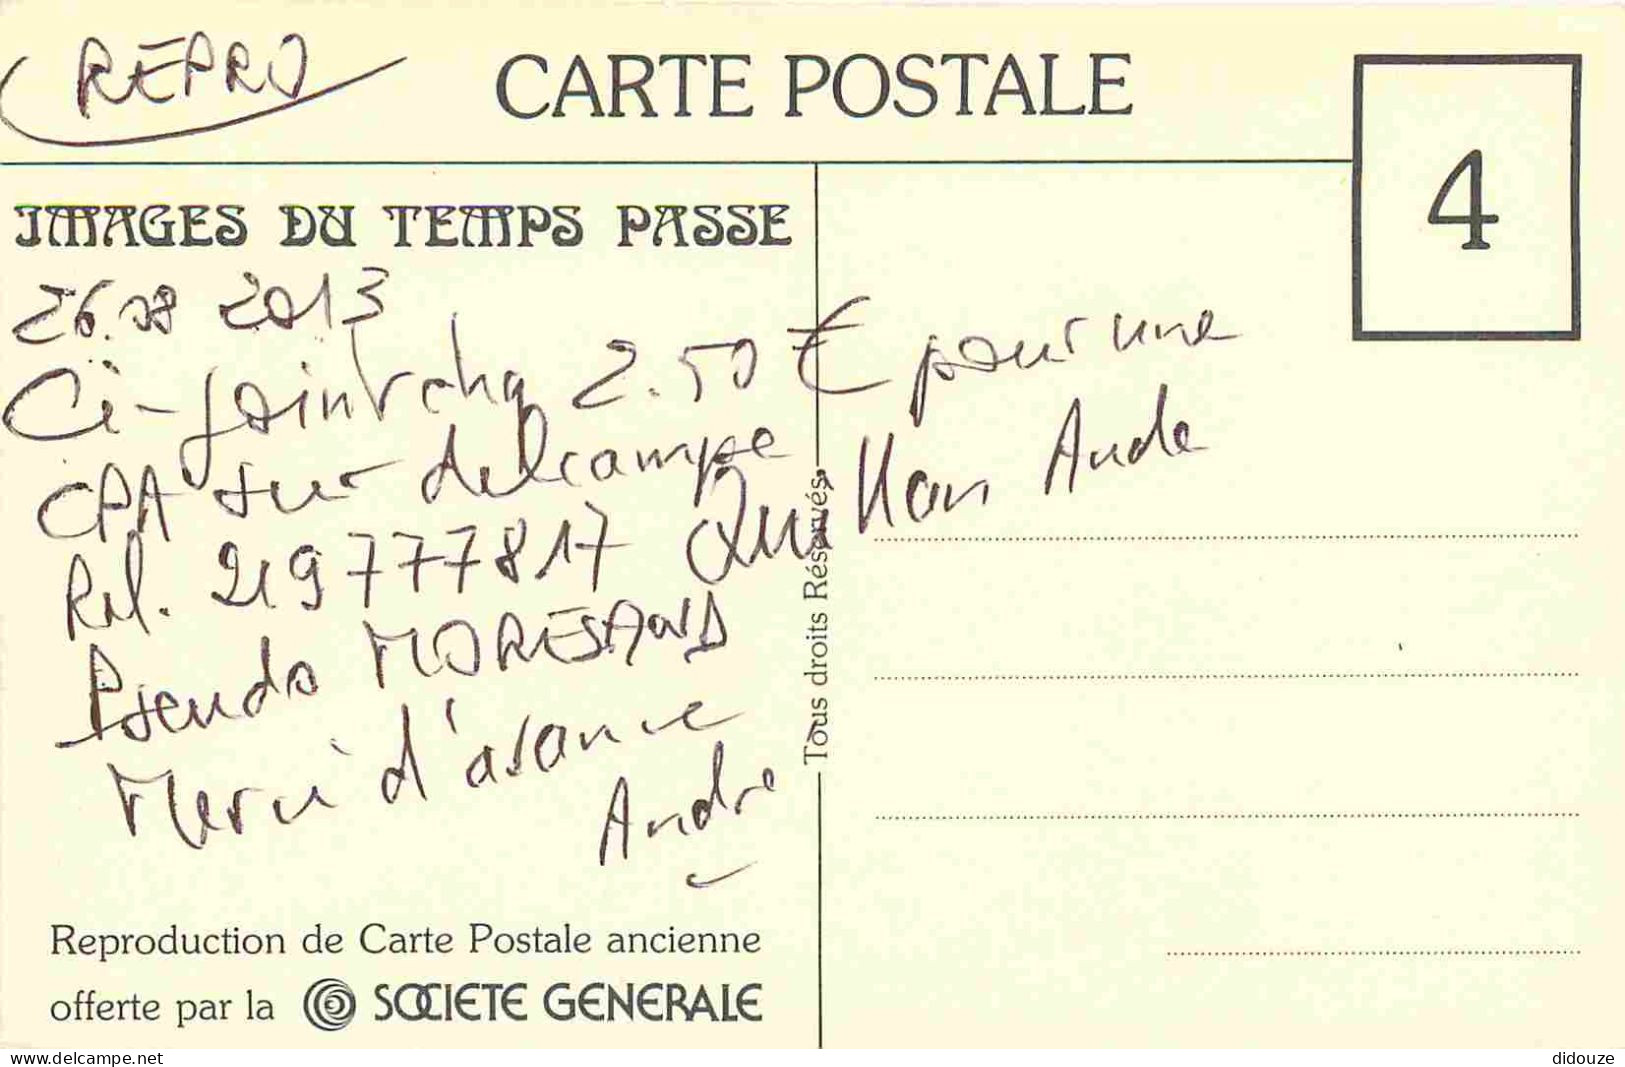 REPRO
CARTE POSTALE
4
IMAGES DU TEMPS PASSE
26.08 2013
Ci-joint chq 2.50 € pour une
CPA sur delcampe Quillan Aude
Ref. 219777817
Pseudo MORESAND
Merci d'avance
André
Tous droits Réservés
Reproduction de Carte Postale ancienne
offerte par la SOCIETE GENERALE
www.delcampe.net
didouze